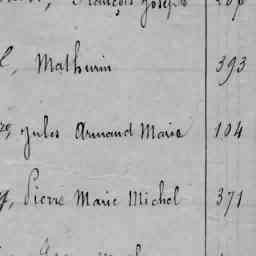 François Joseph
Mathurin 393
Jules Armand Marie 104
Pierre Marie Michel 371